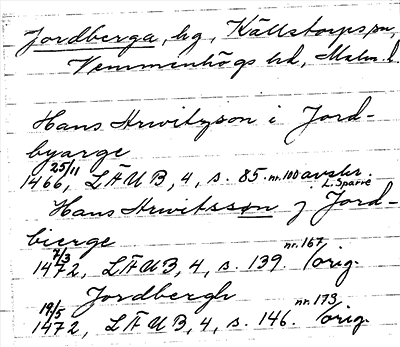 Jordberga, hg, Källstorps sn,
Vemmenhögs hd, Malm. l.
Hans Arwitzson i Jord-
byarge
25/11
1466, LÄUB, 4, s. 85 nr. 100 avskr.
L. Sparre
Hans Arwitsson j Jord-
bierge
7/3
1472, LÄUB, 4, s. 139. nr. 167 orig.
Jordbergh
19/5
1472, LÄUB, 4, s. 146. nr. 173 orig.